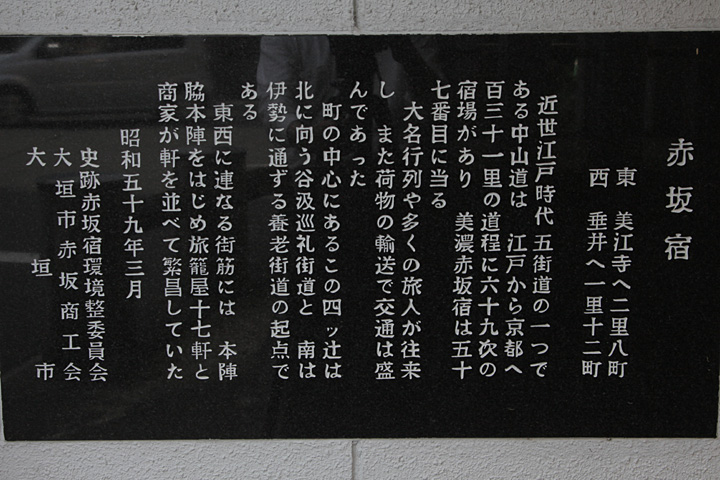 赤坂宿
東 美江寺へ二里八町
西 垂井へ一里十二町
近世江戸時代 五街道の一つで
ある中山道は 江戸から京都へ
百三十一里の道程に六十九次の
宿場があり 美濃赤坂宿は五十
七番目に当る
大名行列や多くの旅人が往来
し また荷物の輸送で交通は盛
んであった
町の中心にあるこの四ッ辻は
北に向う谷汲巡礼街道と 南は
伊勢に通ずる養老街道の起点で
ある
東西に連なる街筋には 本陣
脇本陣をはじめ旅籠屋十七軒と
商家が軒を並べて繁昌していた
昭和五十九年三月
史跡赤坂宿環境整委員会
大垣市赤坂商工会
大垣市